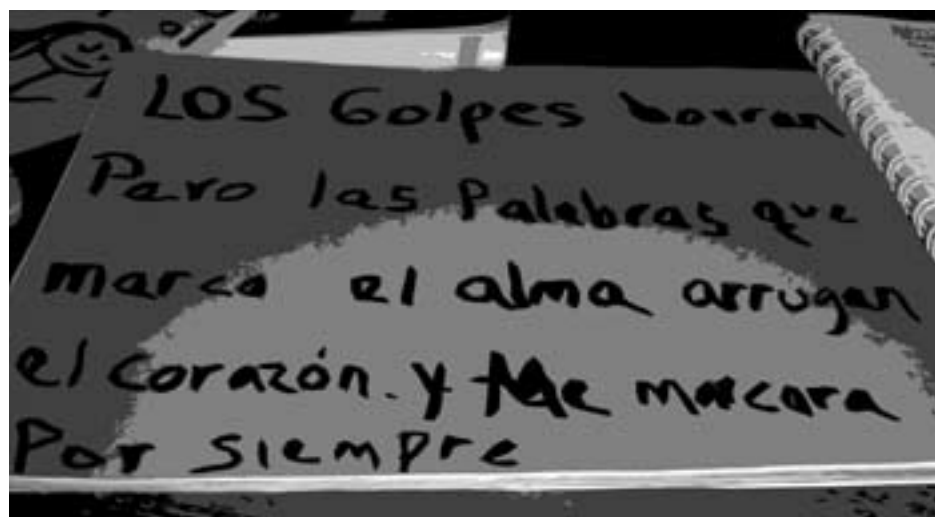 LOS Golpes borran
Pero las Palabras que
marca el alma arrugan
el corazón. y Me marcara
Por siempre